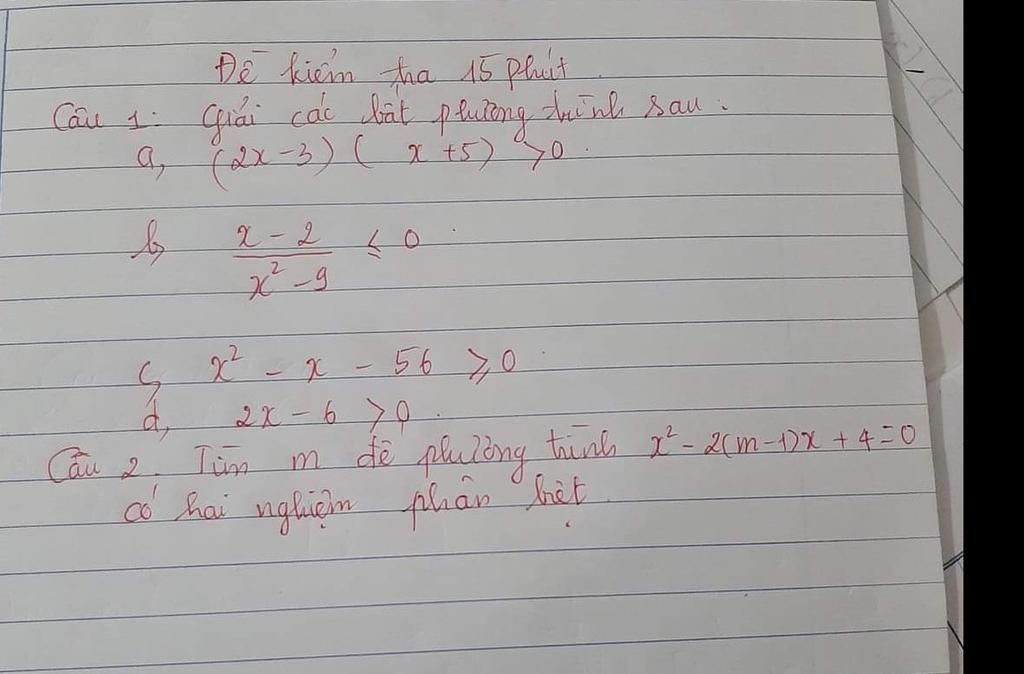 Đề kiểm tra 15 phút.
Câu 1: Giải các bất phương trình sau:
a, (2x-3)( x+5) >0.
b, \frac{x-2}{x^2-9} ≤ 0.
c, x² - x - 56 ⩾ 0.
d, 2x - 6 > 0.
Câu 2. Tìm m để phương trình x² - 2(m-1)x + 4 = 0
có hai nghiệm phân biệt.